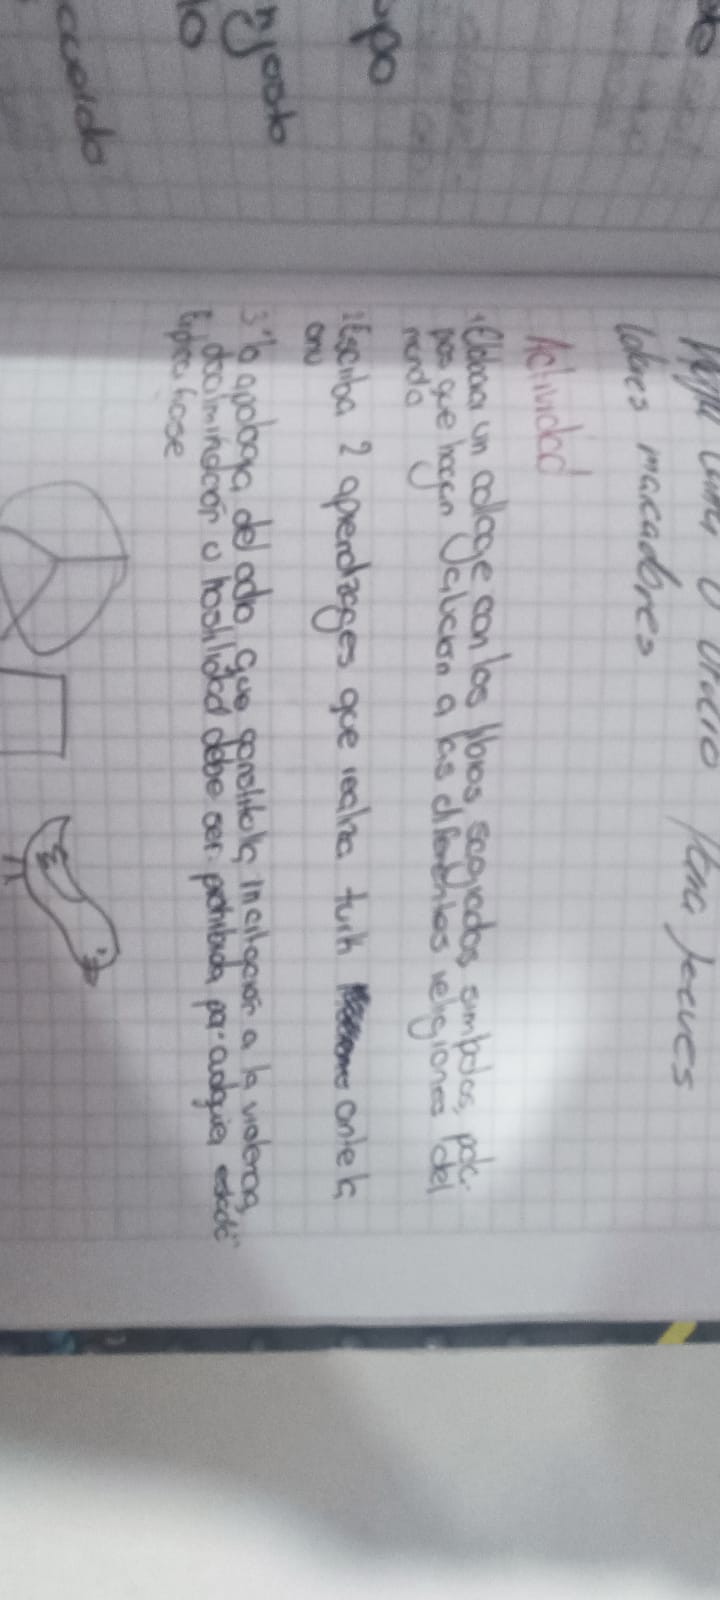 o oficio Para Jueves
lobres macadores
Actividad
1 Elaborar un collage con los libros sagrados, simbolos, pala-
bras que hagan a las diferentes religiones del
mundo
2 Escriba 2 aprendizages que realiza turk ante la
onu
3 "la apologia del odio que constituya incitación a la violencia,
discriminacion u hostilidad debe ser prohibida por cualquier estado"
Explica frase
po
lo
cuerdo